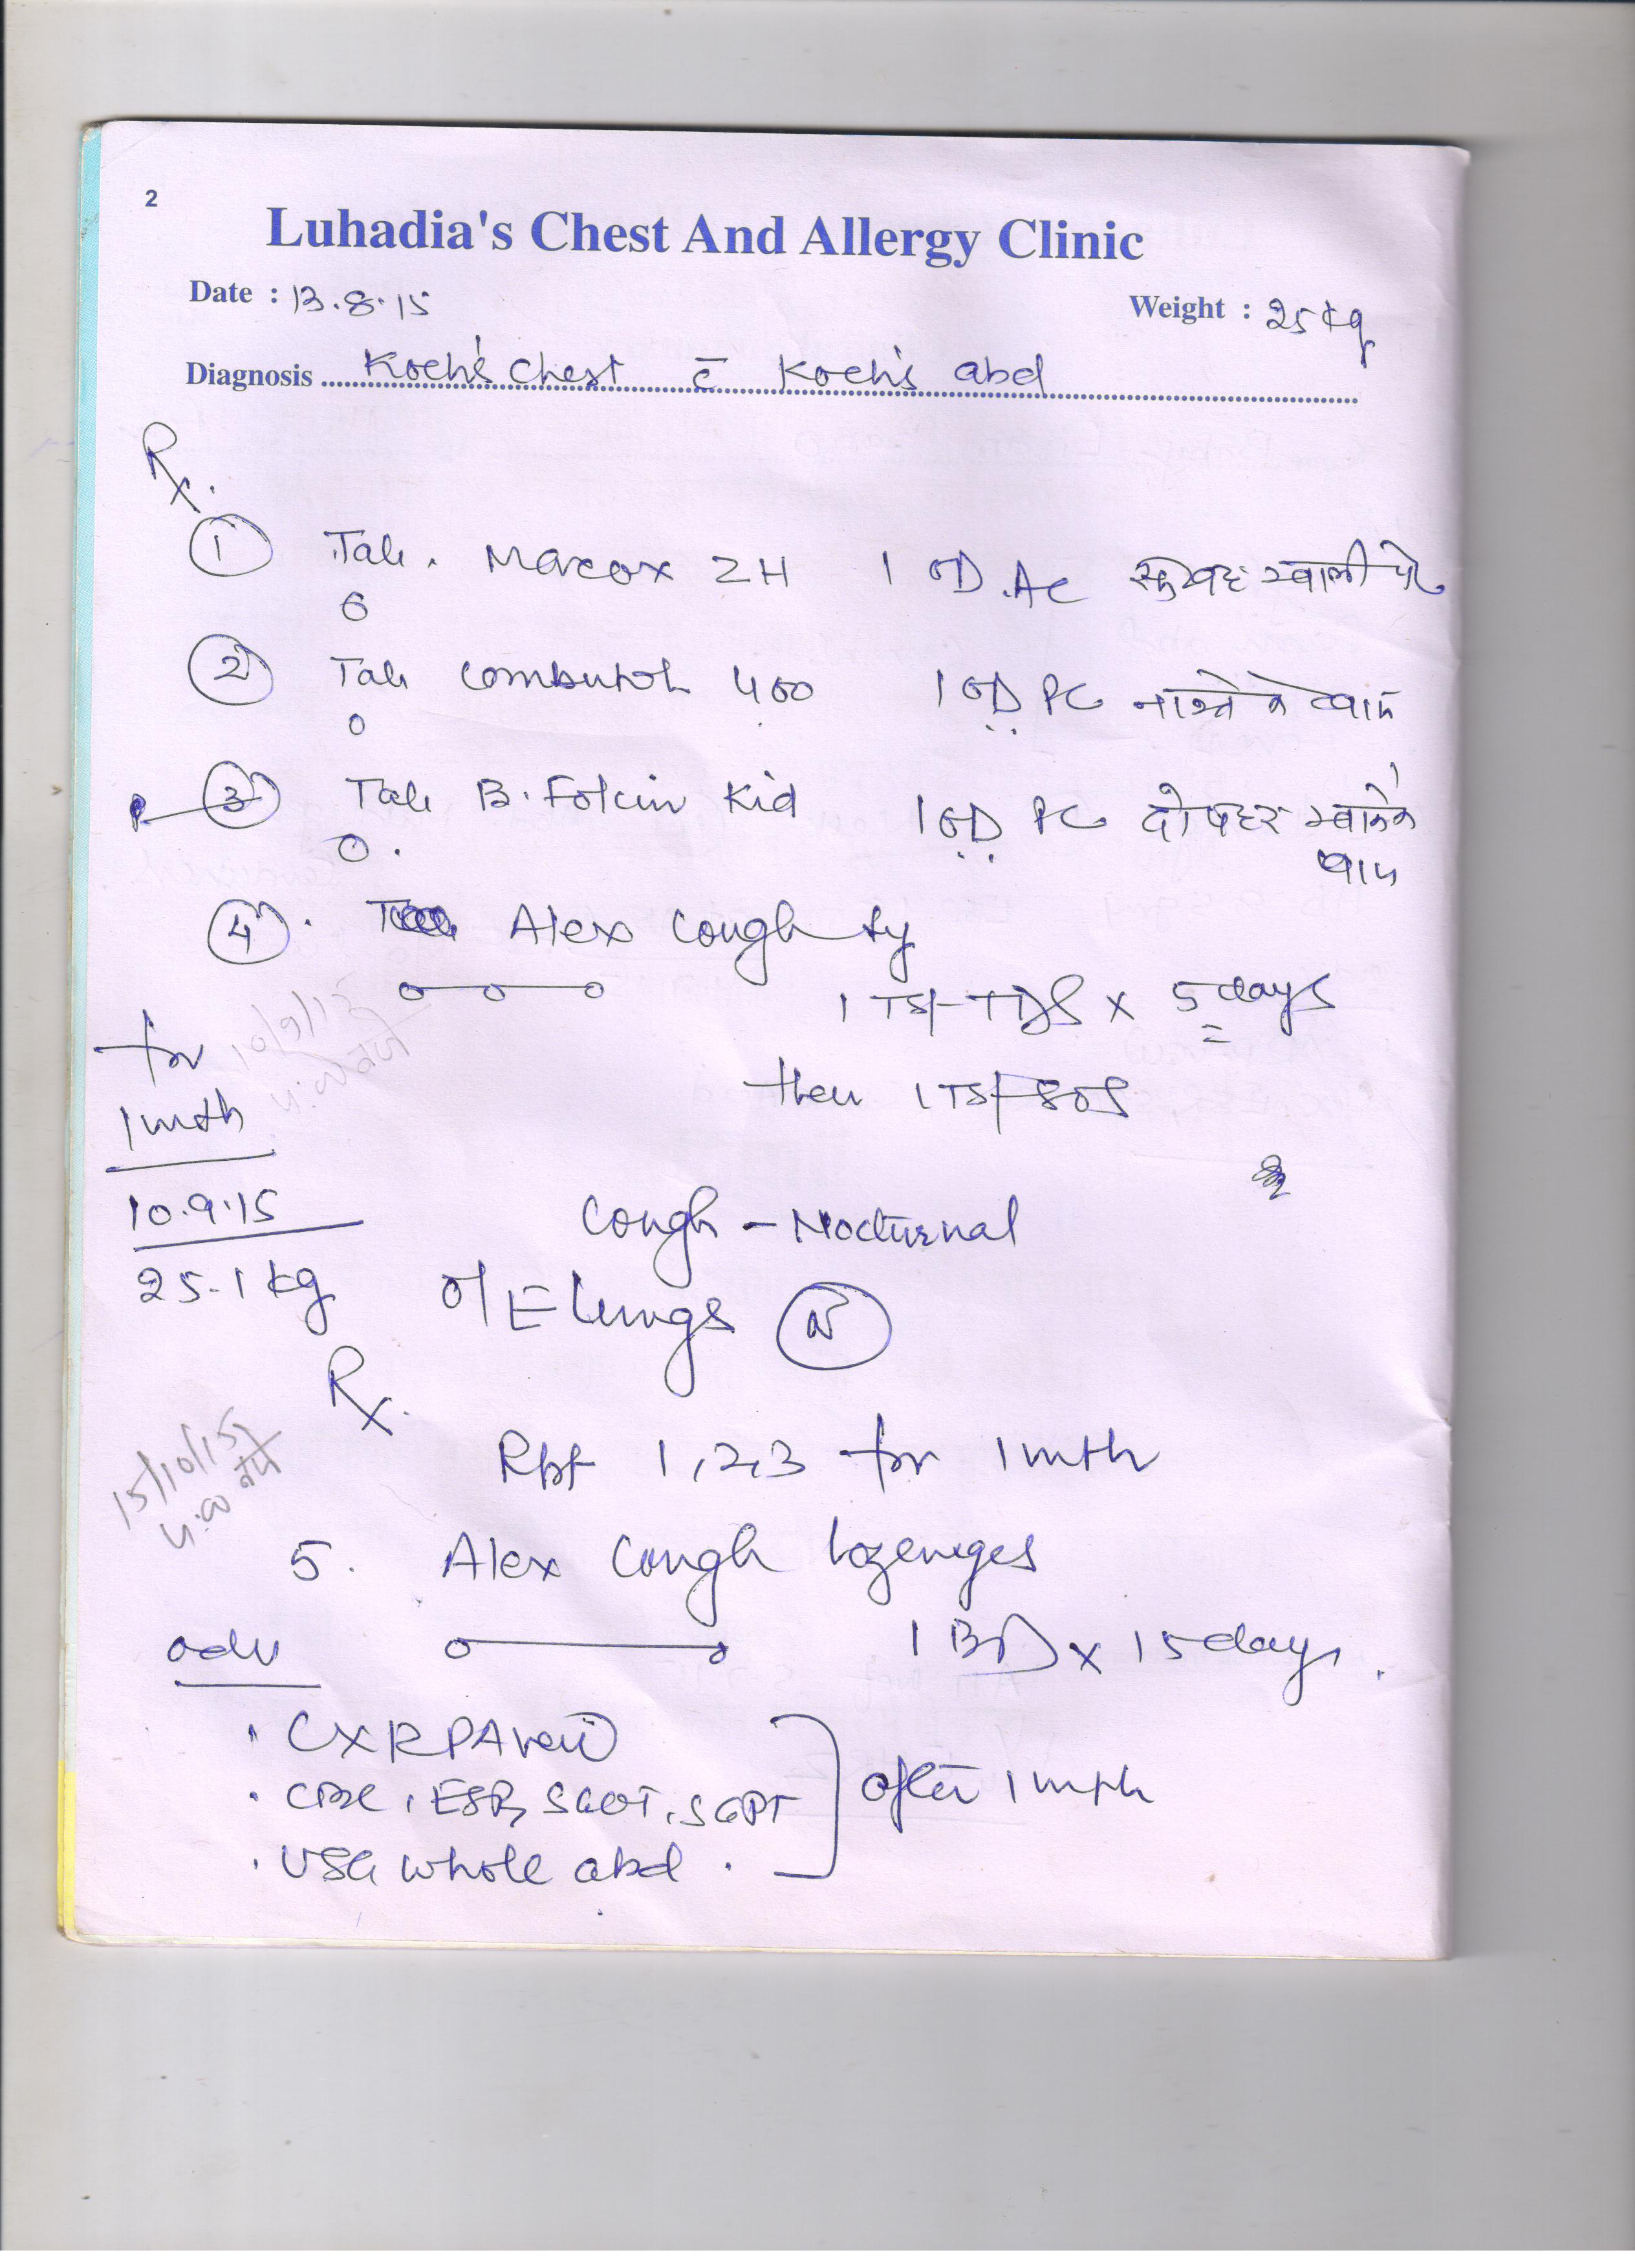 2
Luhadia's Chest And Allergy Clinic
Date : 13.8.15
Weight : 25 kg
Diagnosis Koch's Chest c̄ Koch's abd
Rx.
1 Tab. Macox ZH 1 OD. AC सुबह खाली पेट
2 Tab Combutol 400 1 OD PC नाश्ते के बाद
3 Tab B. Folcin Kid 1 OD PC दोपहर खाने के
बाद
4. Alex Cough Sy
1 TSF TDS x 5 days
for
1 mth
then 1 TSF SOS
10/9/15
10.9.15
Cough - Nocturnal
25.1 kg
O/E lungs N
Rx.
Rpt 1,2,3 for 1 mth
15/10/15
5. Alex Cough lozenges
1 BD x 15 days.
adv
. CXR PA view
. CBC, ESR, SGOT, SGPT
after 1 mth
. USG whole abd.